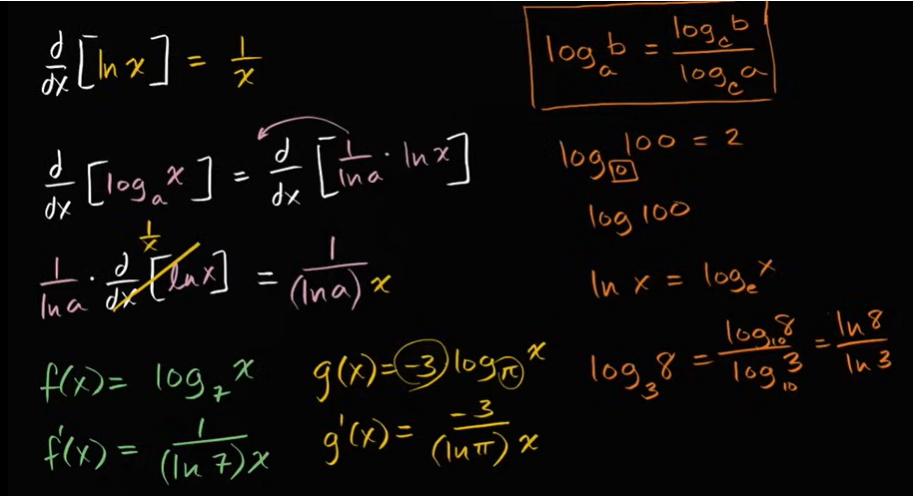 d/dx [ln x] = 1/x
d/dx [logₐ x] = d/dx [1/ln a · ln x]
1/x
1/ln a · d/dx [ln x] = 1/(ln a) x
f(x) = log₇ x
f'(x) = 1/(ln 7)x
g(x) = -3 log_π x
g'(x) = -3/(ln π) x
logₐ b = log_c b / log_c a
log₁₀ 100 = 2
log 100
ln x = logₑ x
log₃ 8 = log₁₀ 8 / log₁₀ 3 = ln 8 / ln 3